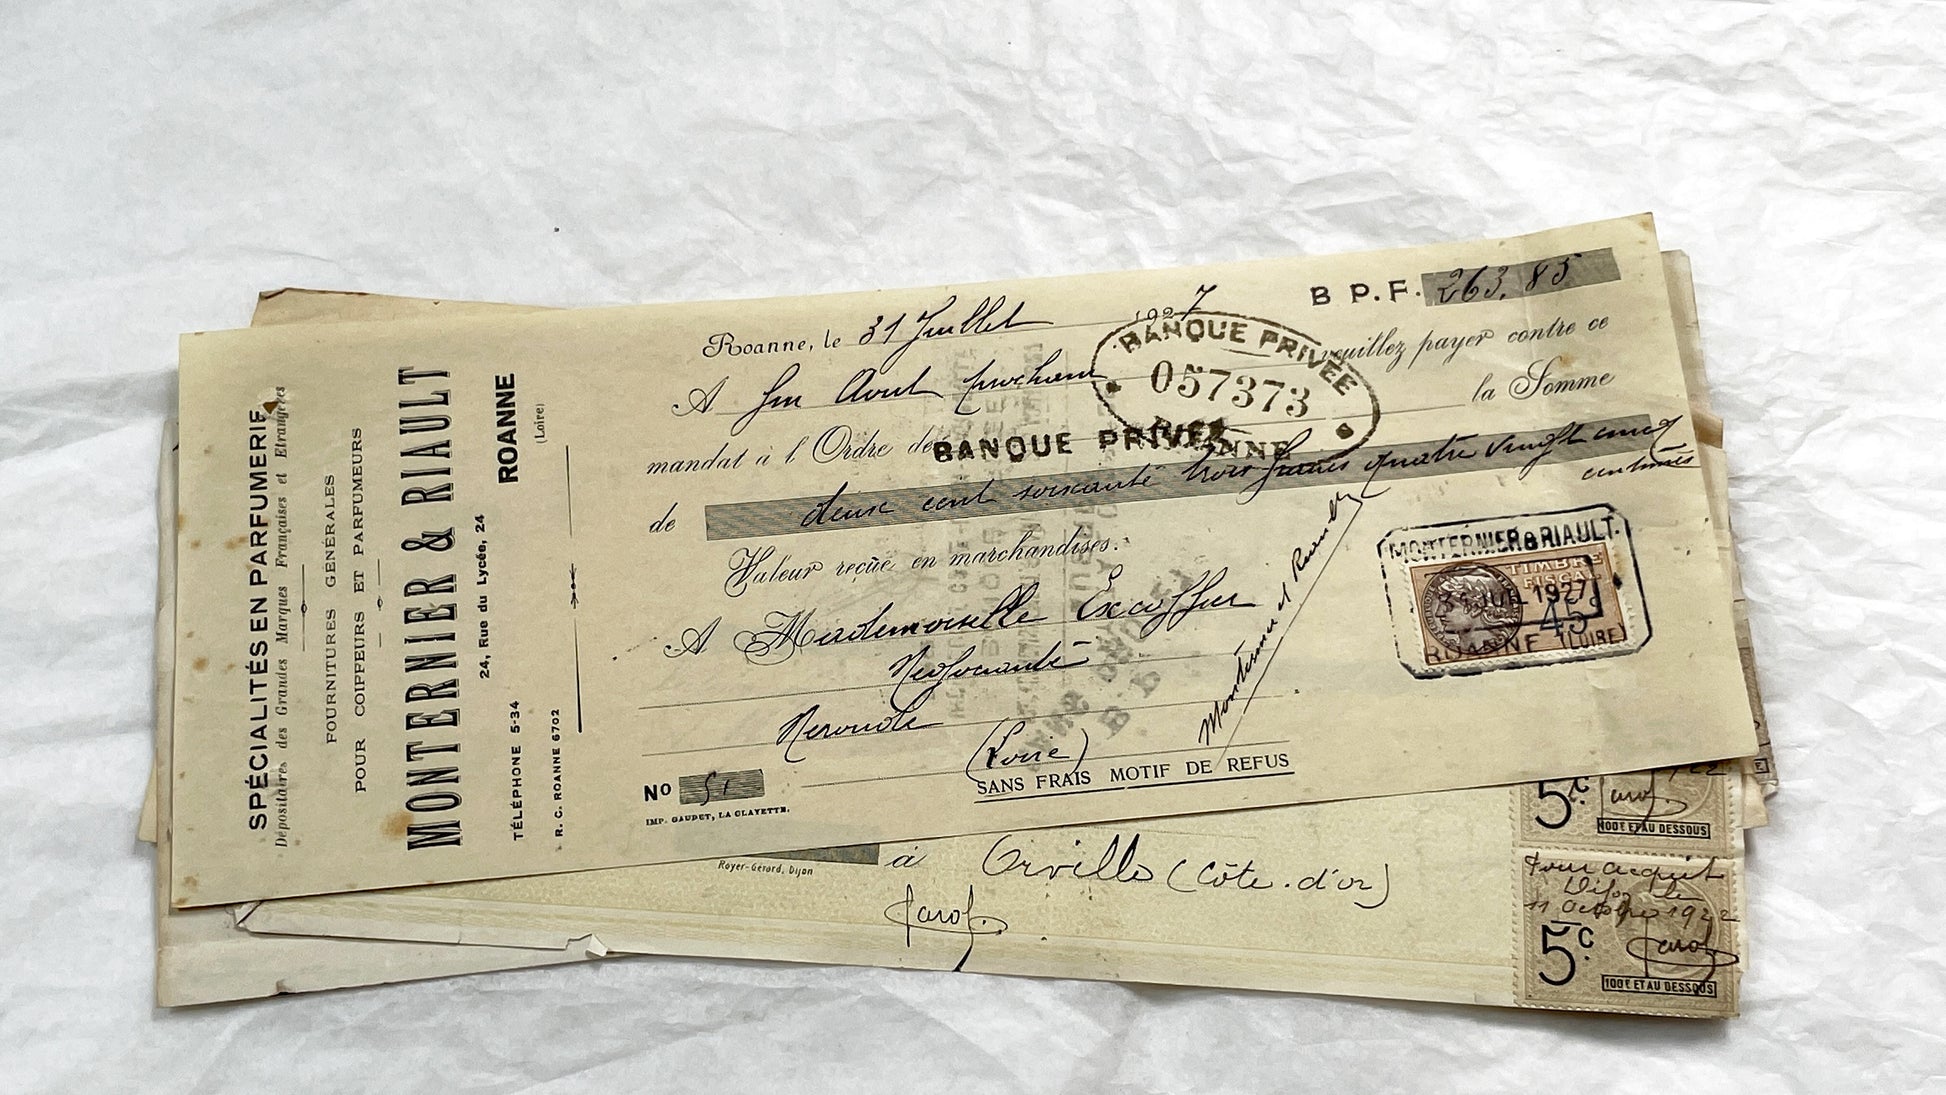 SPÉCIALITÉS EN PARFUMERIE
Dépositaires des Grandes Marques Françaises et Etrangères
FOURNITURES GÉNÉRALES
POUR COIFFEURS ET PARFUMEURS
MONTERNIER & RIAULT
24, Rue du Lycée, 24
ROANNE
(Loire)
TÉLÉPHONE 5-34
R. C. ROANNE 6702
Roanne, le 31 Juillet 1927
B P.F. 263,85
A fin Août prochain veuillez payer contre ce
mandat à l'Ordre de BANQUE PRIVÉE la Somme
BANQUE PRIVÉE
057373
ROANNE
de deux cent soixante trois francs quatre vingt cinq
centimes
Valeur reçue en marchandises.
A Mademoiselle
Négociante
Néronde
(Loire)
No 51
SANS FRAIS MOTIF DE REFUS
IMP. GAUDET, LA CLAYETTE.
MONTERNIER & RIAULT.
TIMBRE
FISCAL
JUIL 1927
ROANNE (LOIRE)
Royer-Gérard, Dijon
à Orville (Côte-d'or)
5c
100F ET AU DESSOUS
Pour acquit
Dijon le
11 Octobre 1922
5c
100F ET AU DESSOUS